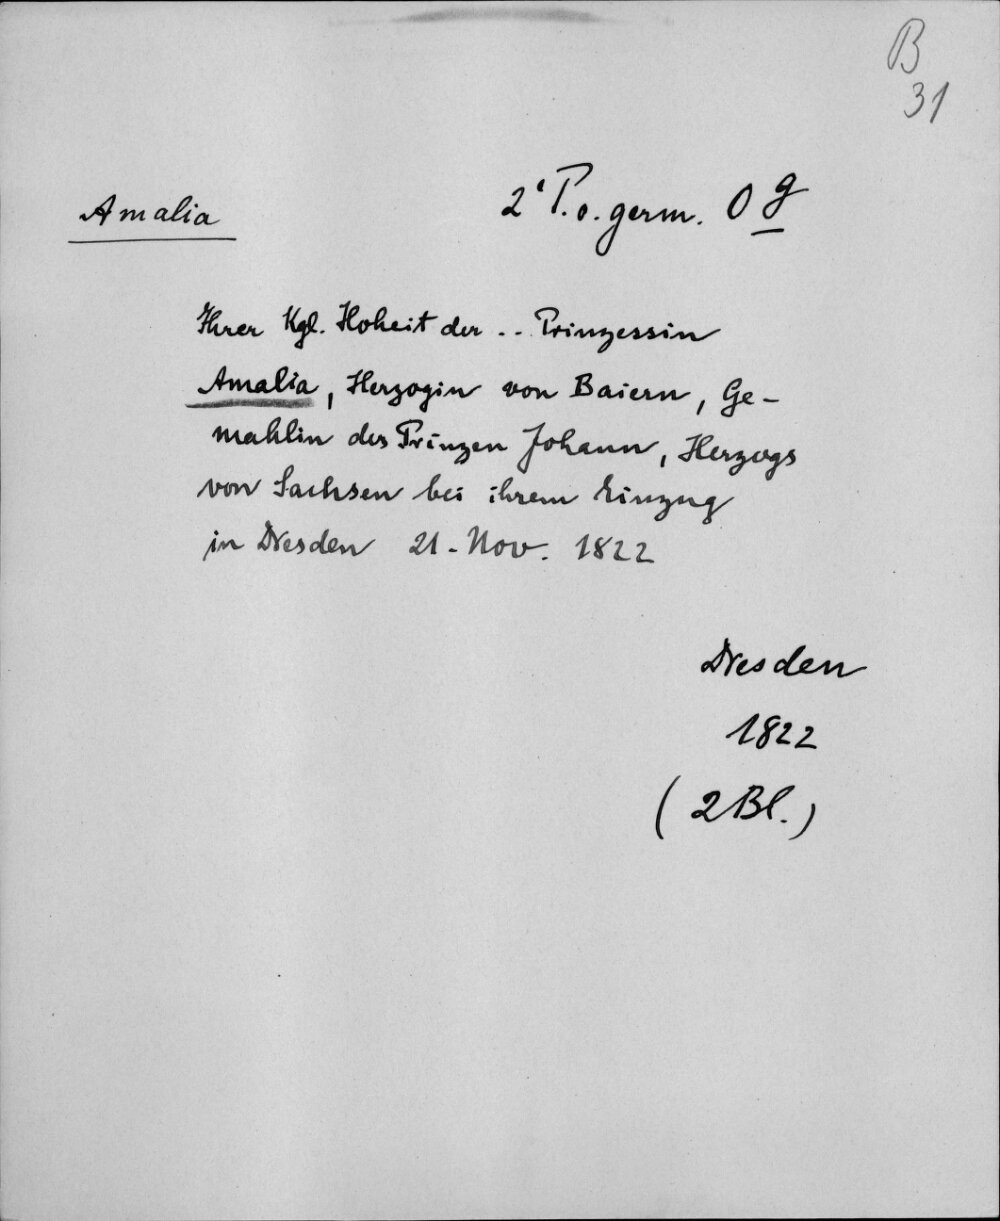 B
31
Amalia
2° P. o. germ. 0 g
Ihrer Kgl. Hoheit der .. Prinzessin
Amalia, Herzogin von Baiern, Ge-
mahlin des Prinzen Johann, Herzogs
von Sachsen bei ihrem Einzug
in Dresden 21. Nov. 1822
Dresden
1822
(2 Bl.)